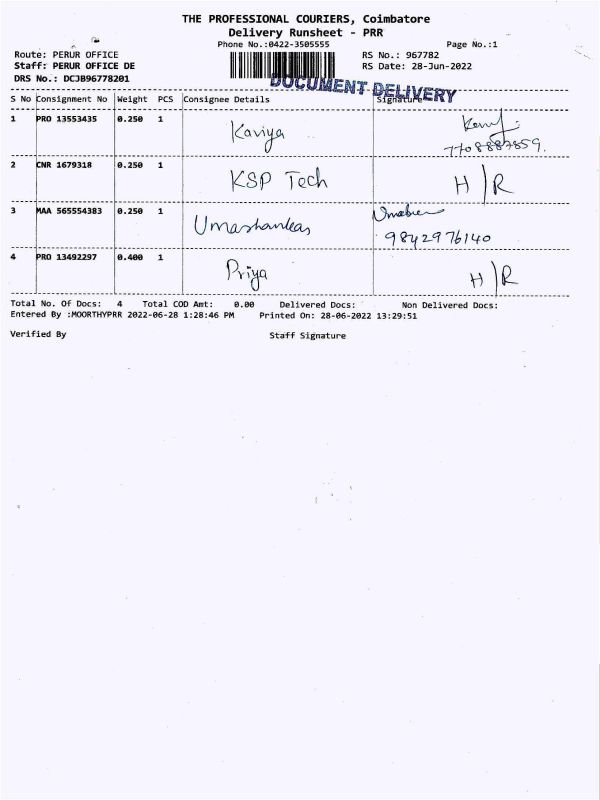 THE PROFESSIONAL COURIERS, Coimbatore
Delivery Runsheet - PRR
Phone No.:0422-3505555 Page No.:1
Route: PERUR OFFICE RS No.: 967782
Staff: PERUR OFFICE DE RS Date: 28-Jun-2022
DRS No.: DCJB96778201
DOCUMENT DELIVERY
S No Consignment No Weight PCS Consignee Details Signature
1 PRO 13553435 0.250 1 Kaviya
7708887859.
2 CNR 1679318 0.250 1 KSP Tech H/R
3 MAA 565554383 0.250 1 Umashankar
9842976140
4 PRO 13492297 0.400 1 Priya H/R
Total No. Of Docs: 4 Total COD Amt: 0.00 Delivered Docs: Non Delivered Docs:
Entered By :MOORTHYPRR 2022-06-28 1:28:46 PM Printed On: 28-06-2022 13:29:51
Verified By Staff Signature